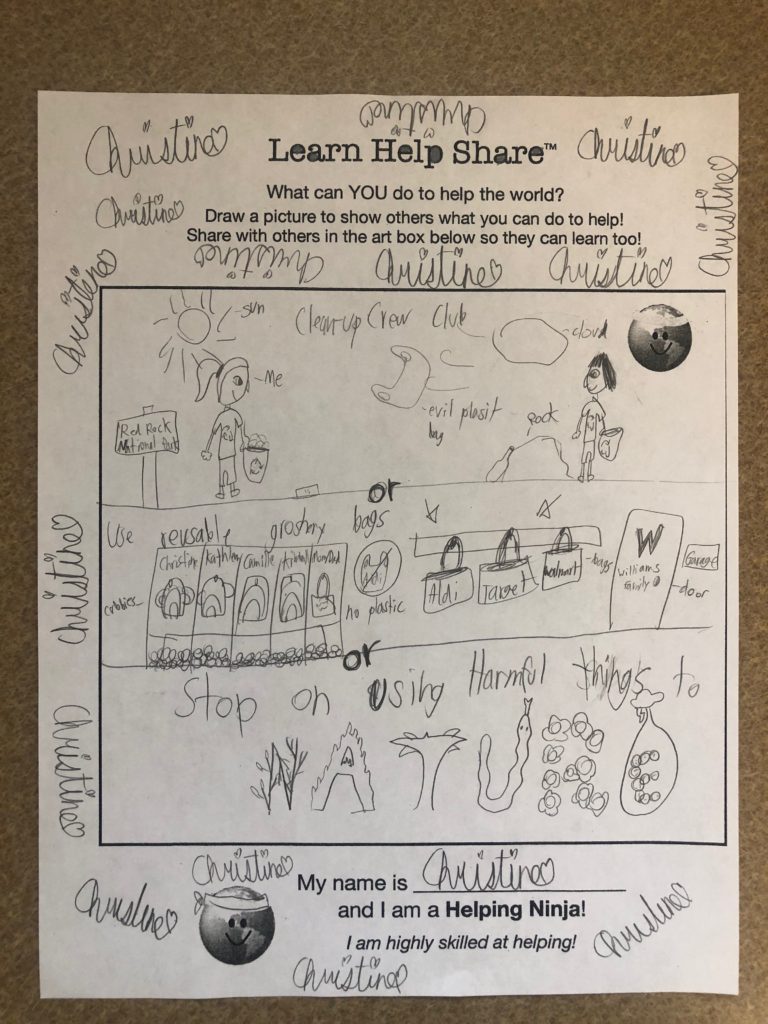 Christine
Christine
Learn Help Share™
Christine
Christine
What can YOU do to help the world?
Draw a picture to show others what you can do to help!
Share with others in the art box below so they can learn too!
Christine
Christine
Christine
Christine
Christine
Cleanup Crew Club
sun
cloud
Me
evil plasit
bag
Rock
Red Rock
National Park
or
Use reusable groshery bags
Christine Kathleen Camille
cubbies
no plastic
Aldi Target Walmart
bags
W
Williams
family
door
Garage
or
Stop on using Harmful things to
NATURE
Christine
Christine
Christine
My name is Christine
and I am a Helping Ninja!
I am highly skilled at helping!
Christine
Christine
Christine